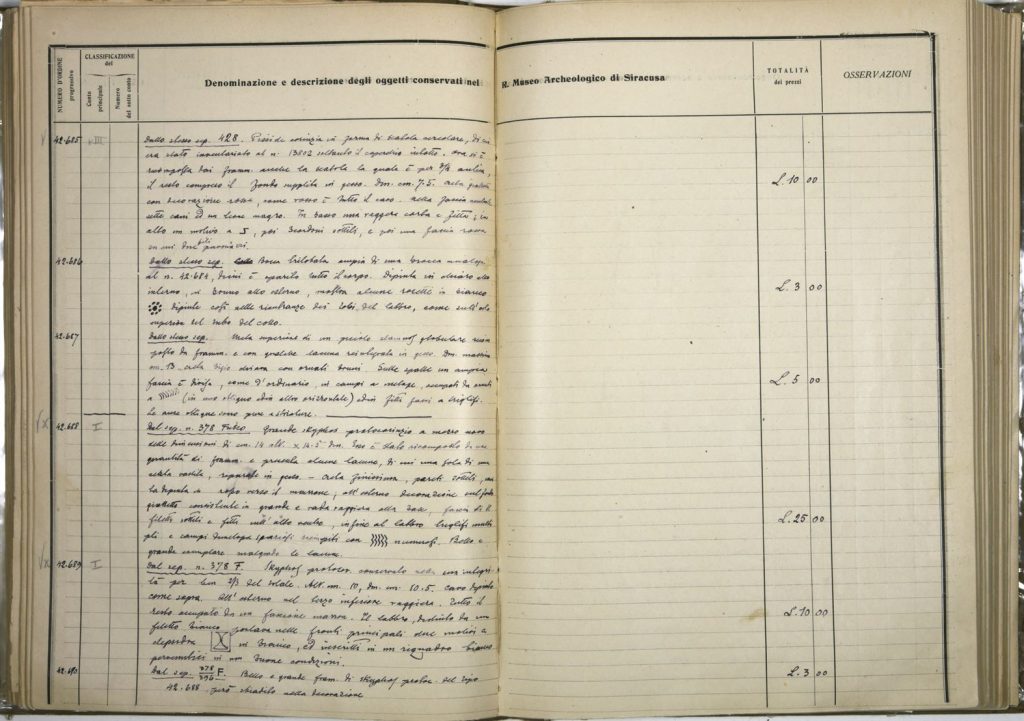 NUMERO D'ORDINE progressivo
CLASSIFICAZIONE del
Conto principale
Numero del sotto conto
Denominazione e descrizione degli oggetti conservati nel R. Museo Archeologico di Siracusa
TOTALITÀ dei prezzi
OSSERVAZIONI
42.685 Dallo stesso sep. 428. Pisside corinzia in forma di scatola circolare, di cui
era stato inventariato al n. 13802 soltanto il coperchio intatto. Ora si è
ricomposta dai framm. anche la scatola la quale è per 3/4 antica,
il resto compreso il fondo supplita in gesso. Dm. cm. 7.5. Creta
con decorazione rossa, come rosso è tutto il cavo. Nella fascia
sette cani ed un leone magro. In basso una raggera corta e fitta; in
alto un motivo a S, poi cordoni sottili, e poi una fascia rossa
L. 10 00
42.686 Dallo stesso sep. Bocca trilobata ampia di una brocca analoga
al n. 42.684, di cui è sparito tutto il corpo. Dipinta in
interno, in bruno allo esterno, mostra alcune rosette in bianco
dipinte così nelle rientranze dei lobi del labbro, come sull'orlo
superiore del tubo del collo.
L. 3 00
42.687 Dallo stesso sep. Metà superiore di un piccolo stamnos globulare ricom
posto da framm. e con qualche lacuna reintegrata in gesso. Dm. massimo
cm. 13. Creta bigio chiara con ornati bruni. Sulle spalle un'ampia
fascia è divisa, come d'ordinario, in campi a metope, occupati da
a (in uno obliquo e in altro orizzontale) e in fitti fasci a triglifi.
Le anse oblique sono pure a striature.
L. 5 00
42.688 I Dal sep. n. 378 Fusco. Grande skyphos protocorinzio a mezzo uovo
delle dimensioni di cm. 14 alt. x 14.5 dm. Esso è stato ricomposto di una
quantità di framm. e presenta alcune lacune, di cui una sola di una
certa vastità, riparati in gesso. - Creta finissima, pareti sottili,
dipinta in rosso verso il marrone, all'esterno decorazione sul fondo
consistente in grande e rada raggera alla base, fascia di
filetti sottili e fitti sull'alto ventre, infine al labbro triglifi multi
pli e campi riempiti con numerosi. Bello e
grande esemplare malgrado le lacune.
L. 25 00
42.689 I Dal sep. n. 378 F. Skyphos protocor. conservato nella sua integri
tà per ben 2/3 del totale. Alt. cm. 10, dm. cm. 10.5. Cavo dipinto
come sopra. All'esterno nel terzo inferiore raggera. Tutto il
resto occupato da un fascione marron. Il labbro, distinto da un
filetto bianco portava nelle fronti principali due motivi a
clepsydra in bianco, ed inscritti in un riquadro bianco
in non buone condizioni.
L. 10 00
42.690 Dal sep. 378 F. Bello e grande fram. di skyphos protoc. del tipo
42.688 però sbiadito nella decorazione
L. 3 00